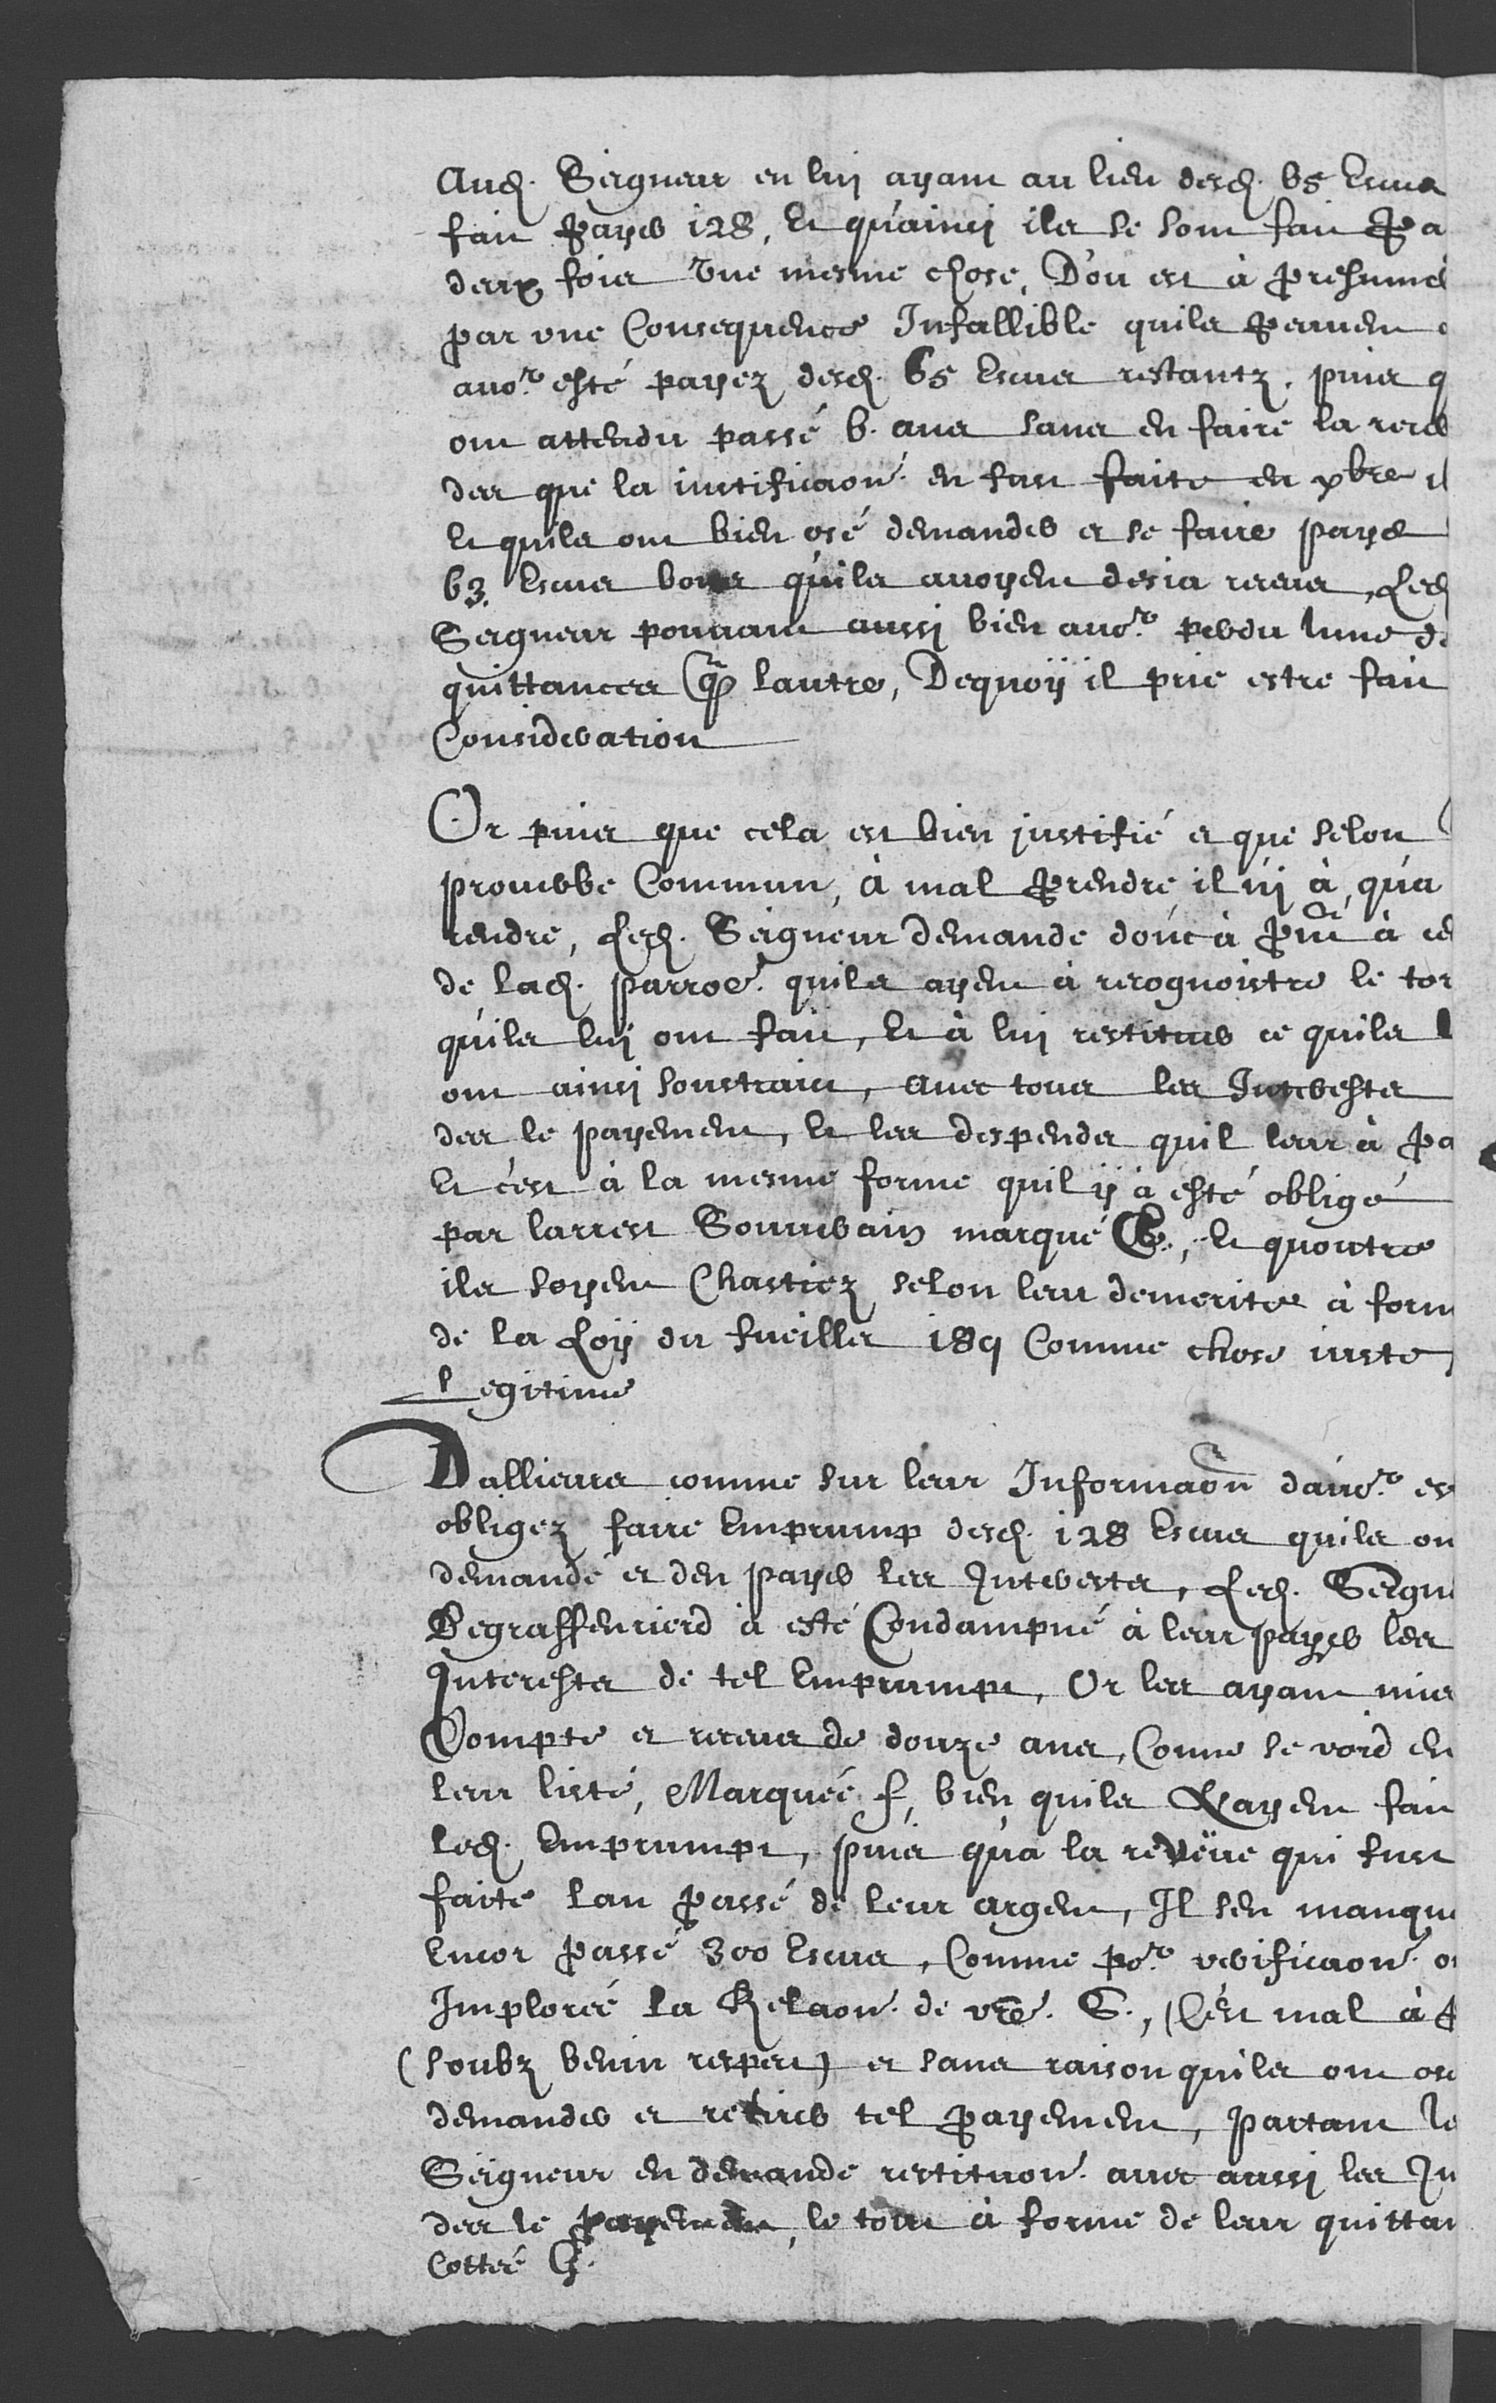 Aud. Seigneur en lui ayant au lieu desd. 65 Escus
fait payer 128, Et qu'ainsi ils se sont fait pa
deux fois vne mesme chose, D'ou est à presume
par vne Consequence Infallible quils peuuent
auor. esté payez desd. 65 Escus restantz, puis q
ont attendu passé 6. ans sans en faire la rece
des que la iustificaon. en fust faite en xbre
Et quils ont bien osé demander et se faire paye
63. Escus bons quils auoyent desia receus, Led
Seigneur pouuant aussi bien auor. perdu lune de
quittances que lautre, Dequoÿ il prie estre fait
Consideration
Or puis que cela est bien justifié et que selon
prouerbe Commun, à mal prendre il nÿ à, qua
rendre, Led. Seigneur demande donc à à ce
de lad. parroe. quils ayent à recognoistre le tor
quils lui ont fait, Et à lui restituer ce quils l
ont ainsi soustraict, auec tous les Interests
des le payement, Et les despends quil leur à pa
Et c'est à la mesme forme quil ÿ à esté obligé
par larrest Souuerain marqué E., Et quoutre
ils soyent Chastiez selon leur demerite à form
de la Loÿ du fueillet 189 Comme chose iuste
Legitime
Dallieurs comme sur leur Informaon dauor. es
obligez faire Emprump desd. 128 Escus quils on
demandé et den payer les Interests, Led. Seigne
Degraffenried à esté Condampné à leur payer les
Interests de tel Emprumpt, Or les ayant mis
Compte et receus de douze ans, Comme se void en
leur liste, Marquée f, bien quils Nayent fait
led. Emprumpt, puis qu'a la revëue qui fust
faite lan passé de leur argent, Il sen manqu
Encor passé 300 Escus, Comme por. verificaon. o
Implorée la Relaon. de vre. G., C'est mal à
(soubz benin respect) et sans raison quils ont os
demander et retirer tel payement, partant le
Seigneur en demande restituon. auec aussi les In
des le payement, le tout à forme de leur quittan
Cotteé G.